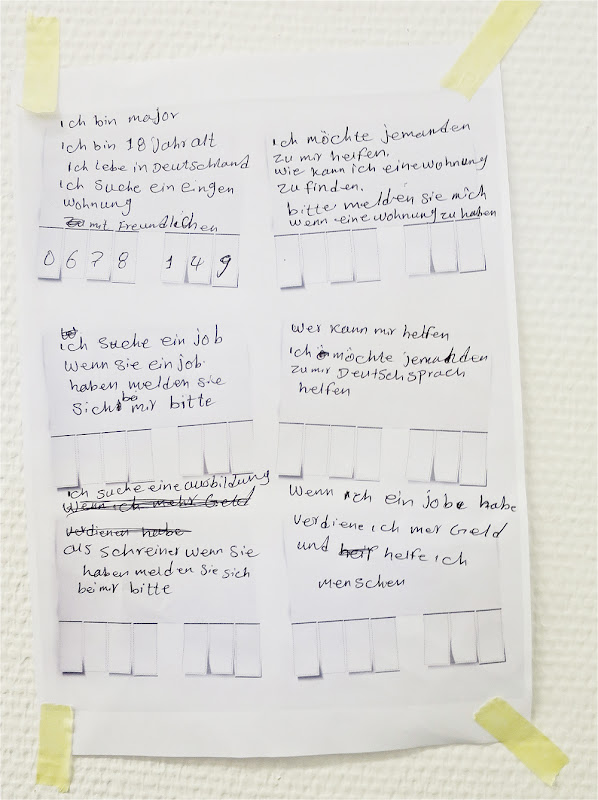 ich bin major
ich bin 18 Jahr alt
ich lebe in Deutschland
ich suche ein eingen
wohnung
mit Freundlichen
0 6 7 8 1 4 9
ich möchte jemanden
zu mir helfen.
wie kann ich eine wohnung
zu finden.
bitte melden sie mich
wenn eine wohnung zu haben
ich suche ein job
wenn sie ein job
haben melden sie
sich bei mir bitte
wer kann mir helfen
ich möchte jemanden
zu mir Deutschsprach
helfen
ich suche eine ausbildung
wenn ich mehr Geld
verdienen habe
als schreiner wenn sie
haben melden sie sich
bei mir bitte
wenn ich ein jobe habe
verdiene ich mer Geld
und helfe ich
menschen